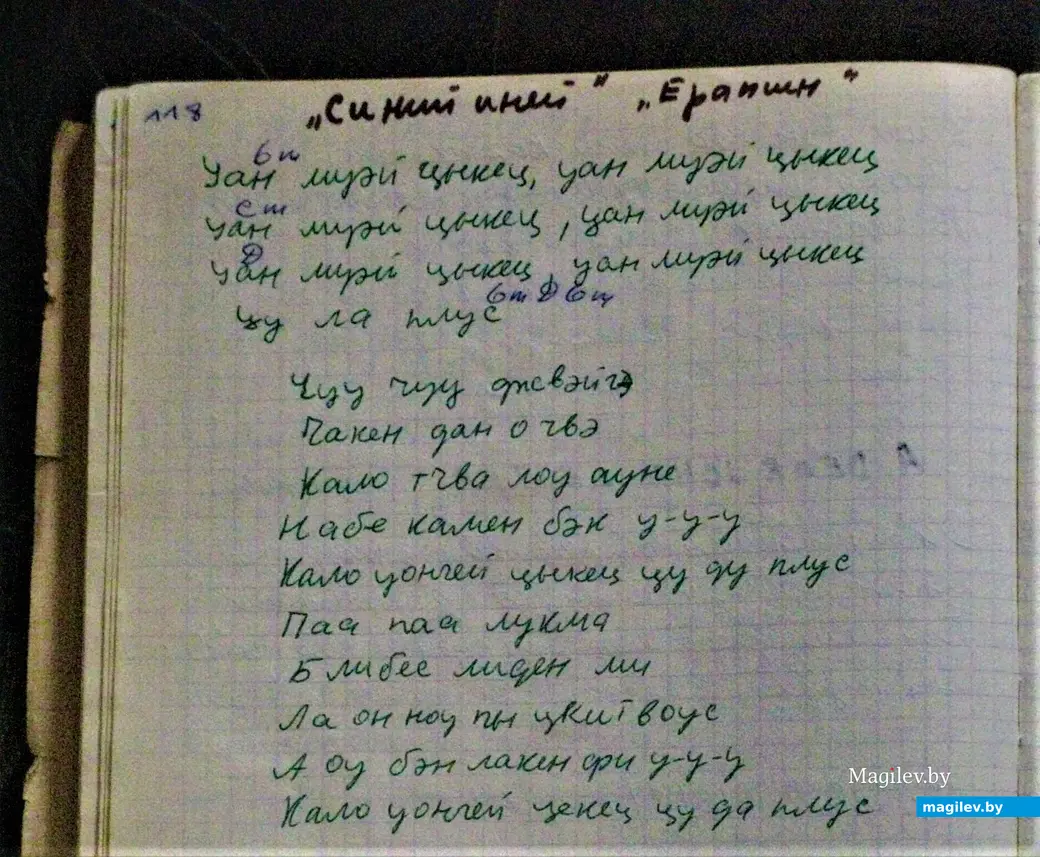 118 „Синий иней" „Ерапшн"
6m
Уан лиуэй цыкец, уан лиуэй цыкец
Cm
Уан лиуэй цыкец, уан лиуэй цыкец
D
Уан лиуэй цыкец, уан лиуэй цыкец
6m D 6m
цу ла плус
Чуу чуу джвэйгэ
Такен дан о чвэ
Кало тчва лоу ауне
Набе камен бэк у-у-у
Кало уончей цыкец цу ду плус
Паа паа лукма
Блибес лиден ми
Ла он ноу пы цкитвоус
А оу бэн лакен фри у-у-у
Кало уончей цекец цу да плус
Magilev.by
magilev.by